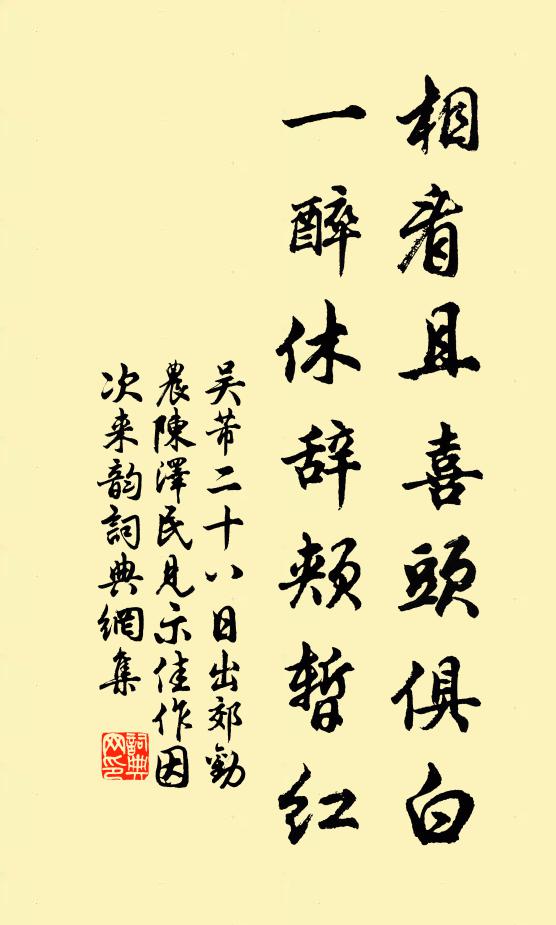 相看且喜頭俱白
一醉休辞頰暫红
吴芾二十八日出郊勸
農陳澤民見示佳作因
次来韵詞典網集
詞典网印